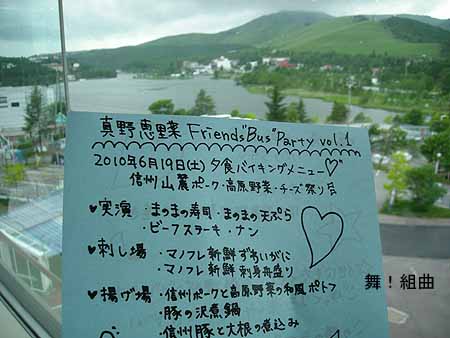 真野恵里菜 Friends"Bus"Party vol.1
2010年6月19日(土) 夕食バイキングメニュー♡
信州山麓ポーク・高原野菜・チーズ祭り
♥実演・まのまの寿司・まのまの天ぷら
・ビーフステーキ・ナン
♥刺し場・マノフレ新鮮ずわいがに
・マノフレ新鮮刺身舟盛り
♥揚げ場・信州ポークと高原野菜の和風ポトフ
・豚の沢煮鍋
・信州豚と大根の煮込み
舞!組曲